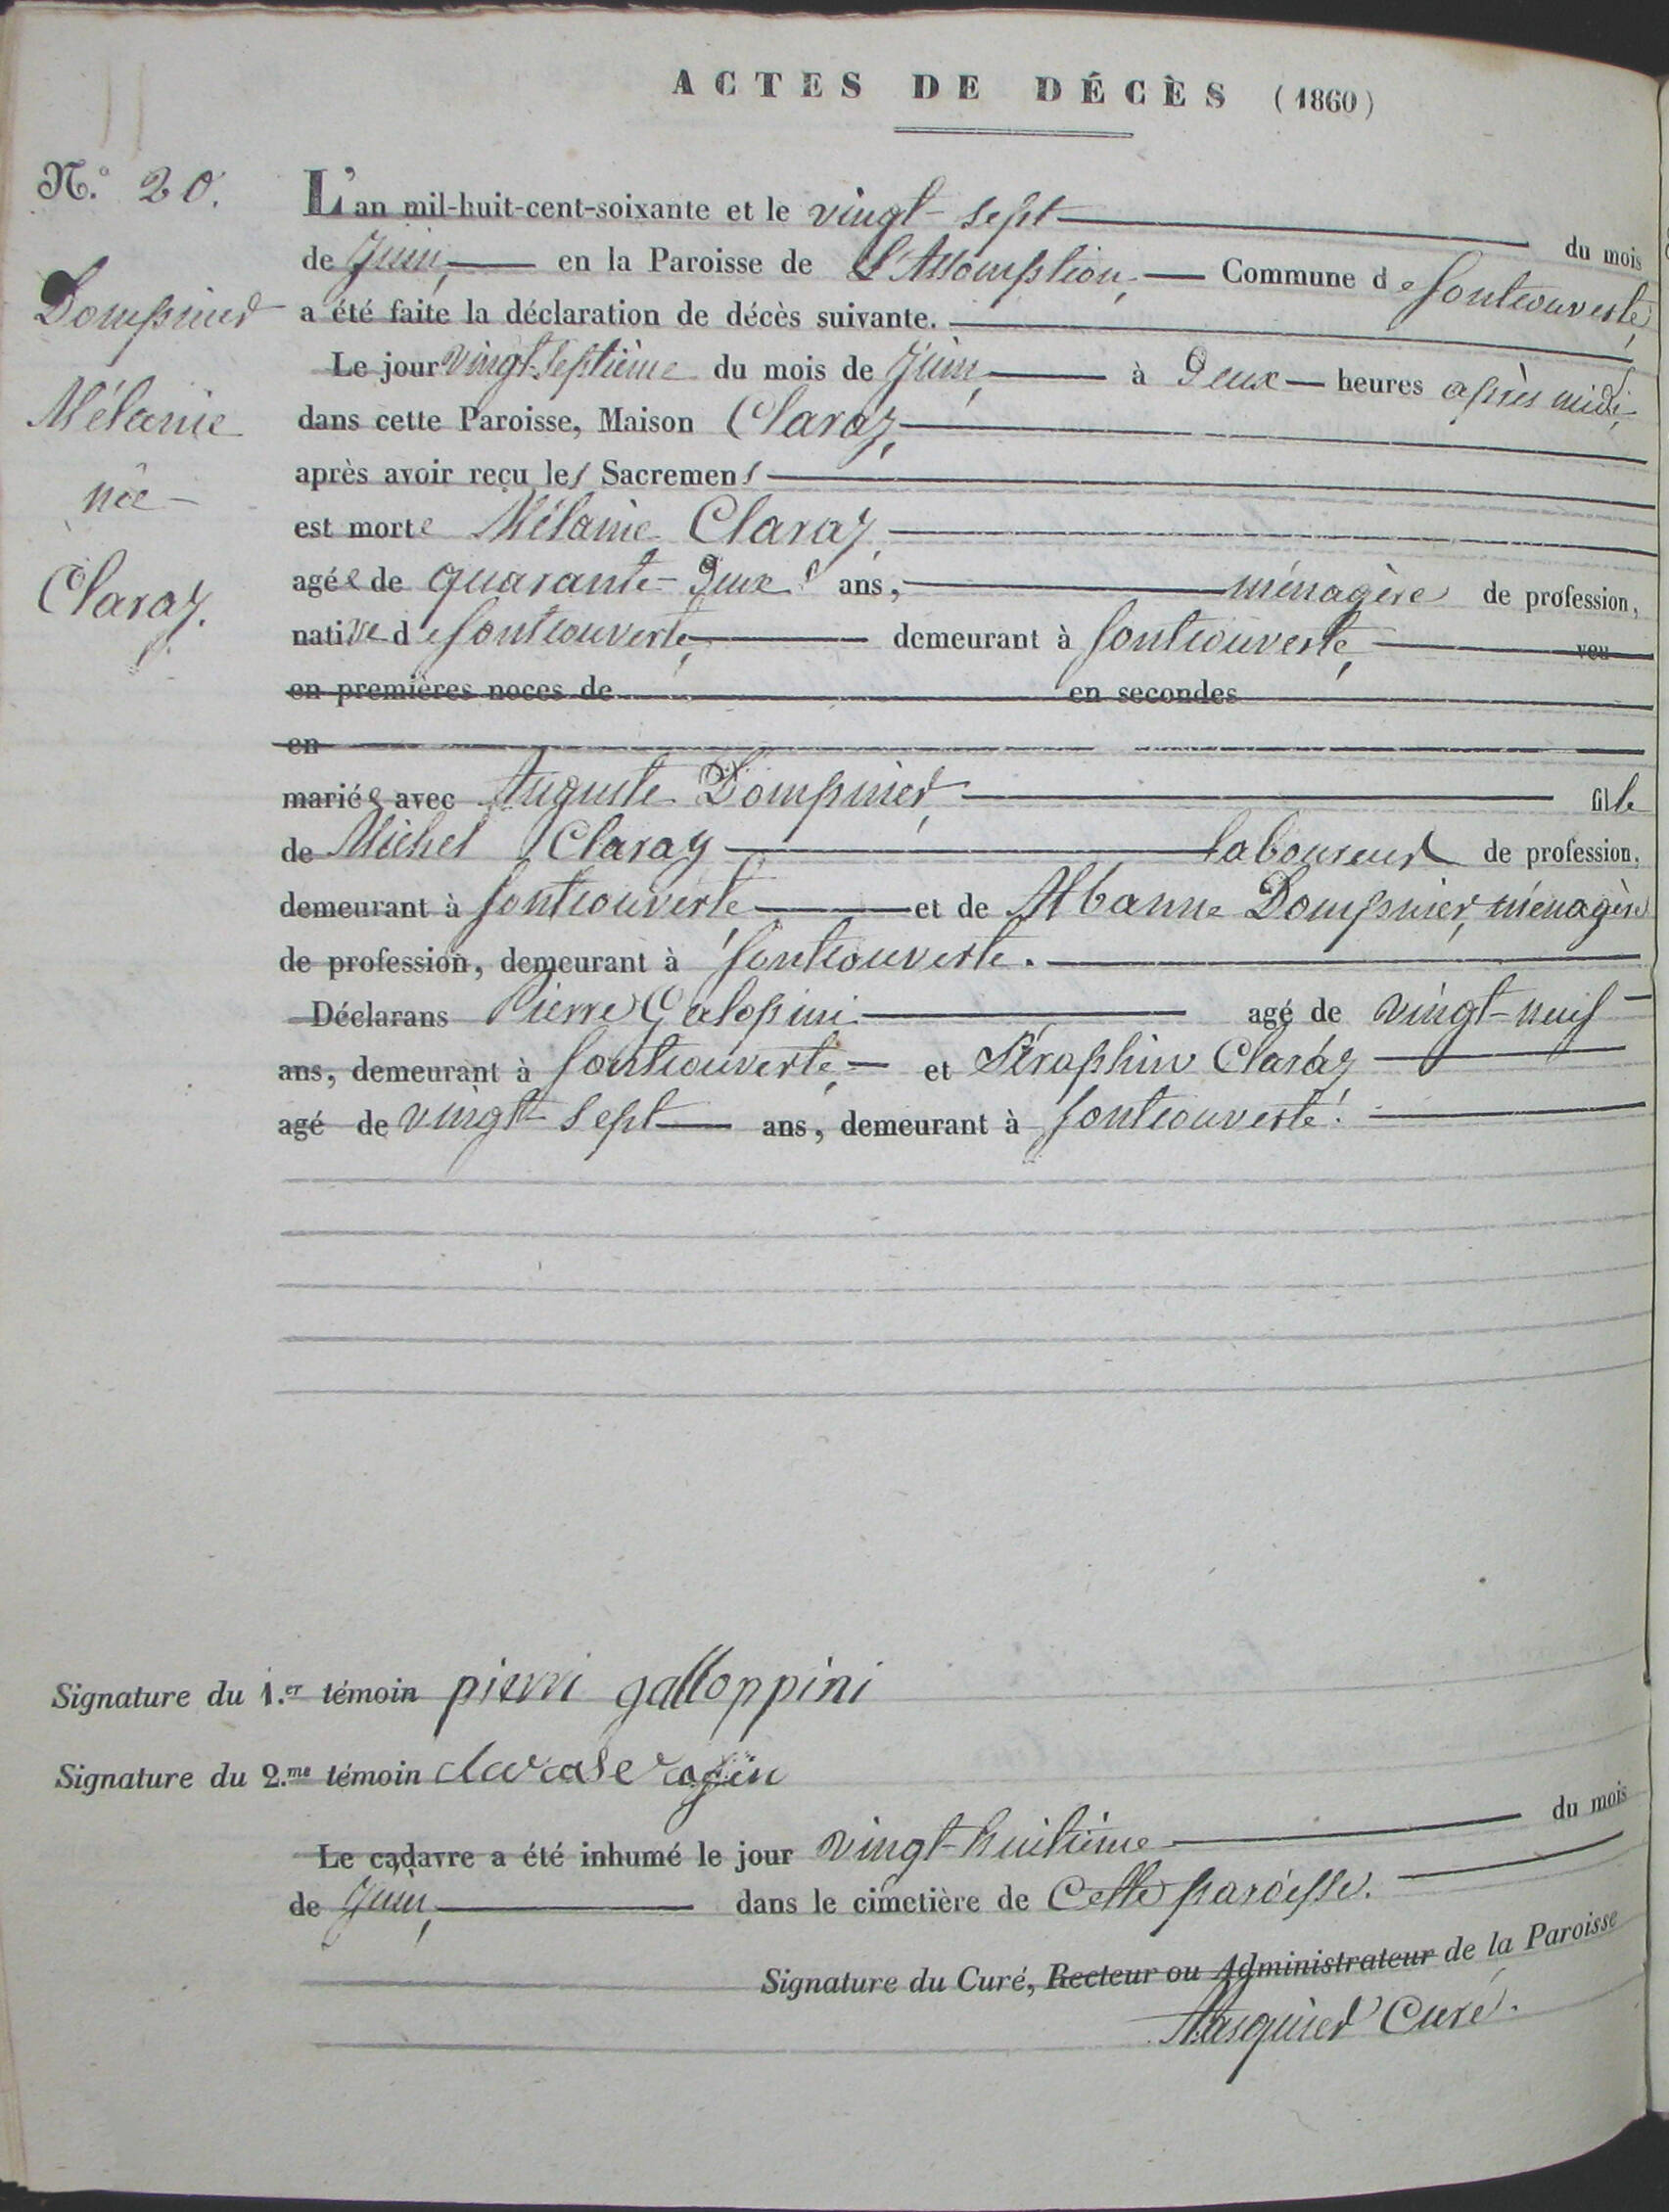 ACTES DE DÉCÈS (1860)
N.° 20.
Dompnier
Mélanie
née
Claraz.
L'an mil-huit-cent-soixante et le vingt-sept du mois
de Juin, en la Paroisse de L'Assomption, Commune de fontcouverte,
a été faite la déclaration de décès suivante.
Le jour vingt-septième du mois de Juin, à Deux heures après midi,
dans cette Paroisse, Maison Claraz,
après avoir reçu les Sacremens
est morte Mélanie Claraz,
agée de quarante-Deux ans, ménagère de profession,
native de fontcouverte, demeurant à fontcouverte, veu
en premières noces de en secondes
en
mariée avec Auguste Dompnier, fille
de Michel Claraz laboureur de profession,
demeurant à fontcouverte, et de Albanne Dompnier, ménagère
de profession, demeurant à fontcouverte.
Déclarans Pierre Galopini agé de vingt-neuf
ans, demeurant à fontcouverte, et Séraphin Claraz
agé de vingt-sept ans, demeurant à fontcouverte.
Signature du 1.er témoin pierri galloppini
Signature du 2.me témoin
Le cadavre a été inhumé le jour vingt-huitième du mois
de Juin, dans le cimetière de Cette paroisse.
Signature du Curé, Recteur ou Administrateur de la Paroisse
Curé.